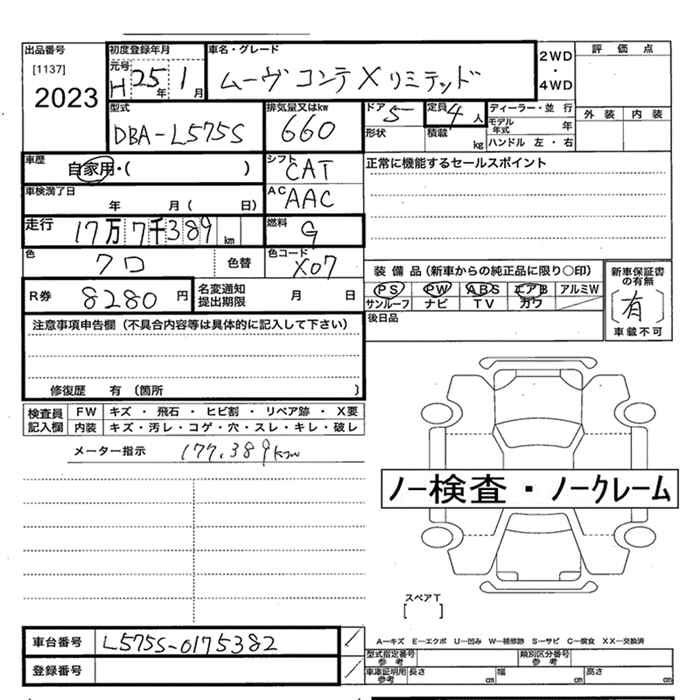 出品番号 初度登録年月 車名・グレード 評価点
[1137] 元号 2WD
2023 H 25年 1月 ムーヴ コンテ X リミテッド ・
4WD
型式 排気量又はkw ドア 5 定員 4人 ディーラー・並行 外装 内装
DBA-L575S 660 形状 積載 kg モデル年式 年
ハンドル 左・右
車歴 自家用・( ) シフト CAT 正常に機能するセールスポイント
車検満了日 年 月( 日) AC AAC
走行 17万7千389km 燃料 G
色 クロ 色替 色コード X07
装備品(新車からの純正品に限り○印) 新車保証書の有無
R券 8280円 名変通知提出期限 月 日 PS PW ABS エアB アルミW [有]
サンルーフ ナビ TV カワ 車載不可
注意事項申告欄(不具合内容等は具体的に記入して下さい) 後日品
修復歴 有(箇所 )
検査員記入欄 FW キズ・飛石・ヒビ割・リペア跡・X要
内装 キズ・汚レ・コゲ・穴・スレ・キレ・破レ
メーター指示 177,389km
ノー検査・ノークレーム
スペアT
[ ]
車台番号 L575S-0175382
A…キズ E…エクボ U…凹み W…補修跡 S…サビ C…腐食 XX…交換済
登録番号 型式指定番号 参考 類別区分番号 参考
車庫証明用 参考 長さ cm 幅 cm 高さ cm